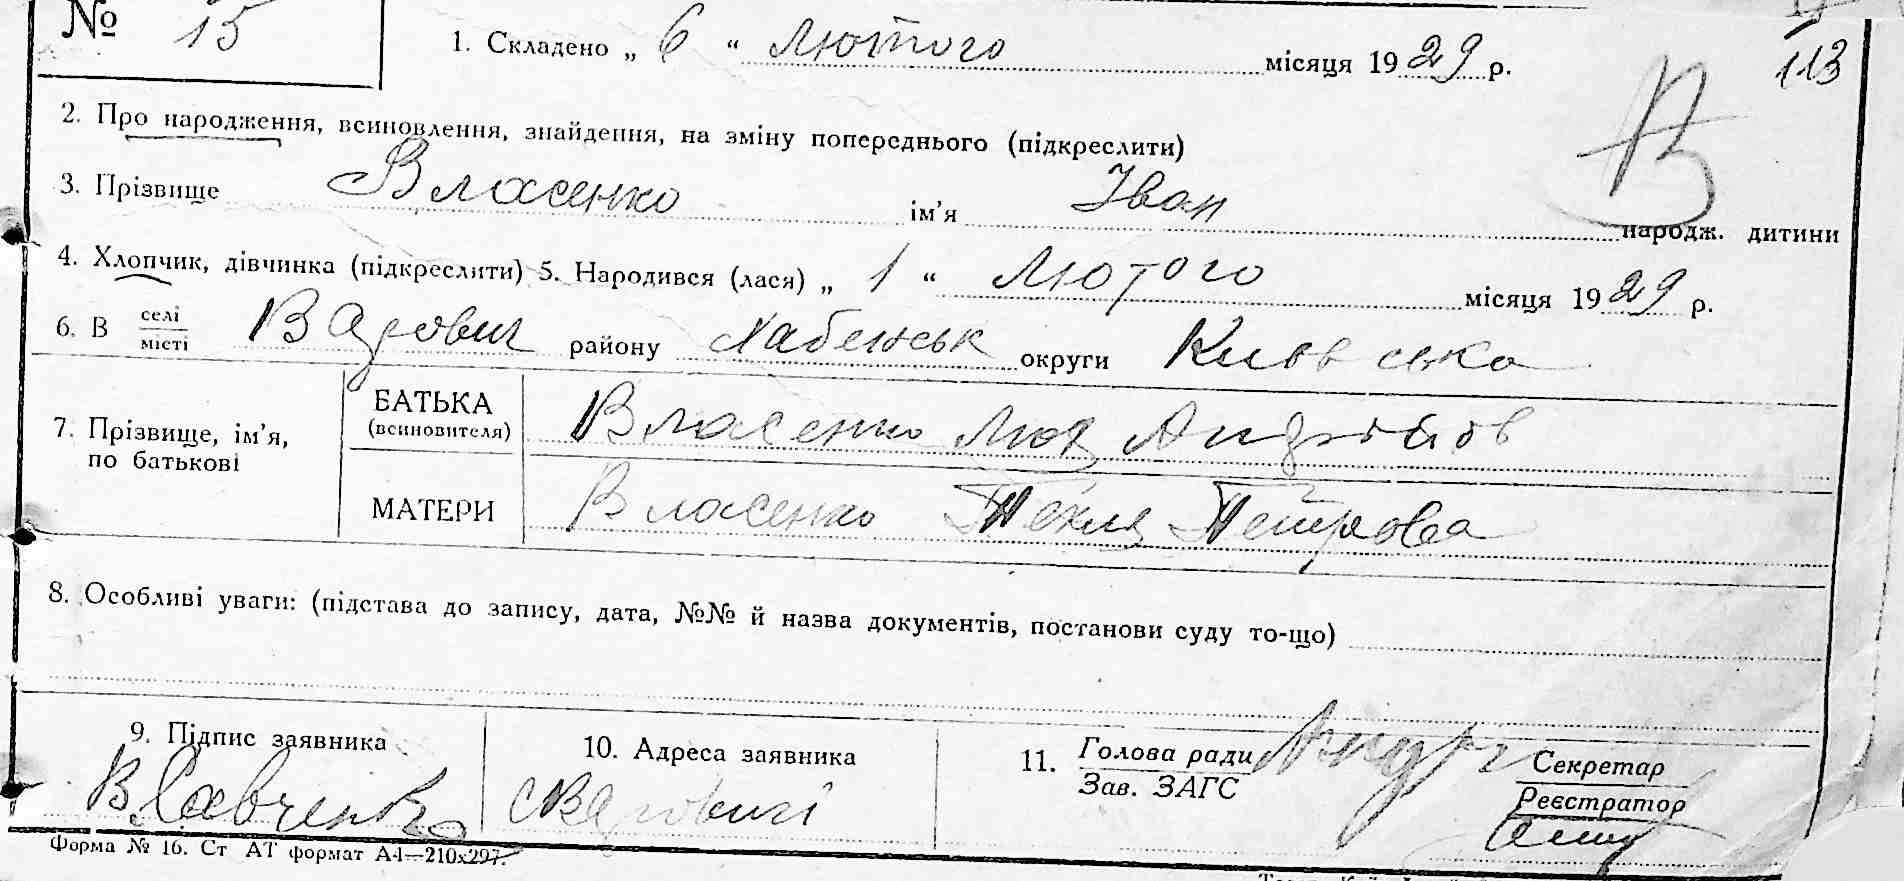 № 15
1. Складено „ 6 “ Лютого місяця 1929 р.
113
2. Про народження, всиновлення, знайдення, на зміну попереднього (підкреслити)
В
3. Прізвище Власенко ім’я Іван народж. дитини
4. Хлопчик, дівчинка (підкреслити) 5. Народився (лася) „ 1 “ Лютого місяця 1929 р.
6. В селі / місті Вядович району Хабенськ округи Київсько
7. Прізвище, ім’я, по батькові
БАТЬКА (всиновителя) Власенко Андріов
МАТЕРИ Власенко Текля Петрова
8. Особливі уваги: (підстава до запису, дата, №№ й назва документів, постанови суду то-що)
9. Підпис заявника
10. Адреса заявника
11. Голова ради / Зав. ЗАГС
Секретар / Реєстратор
Форма № 16. Ст АТ формат А4—210х297.